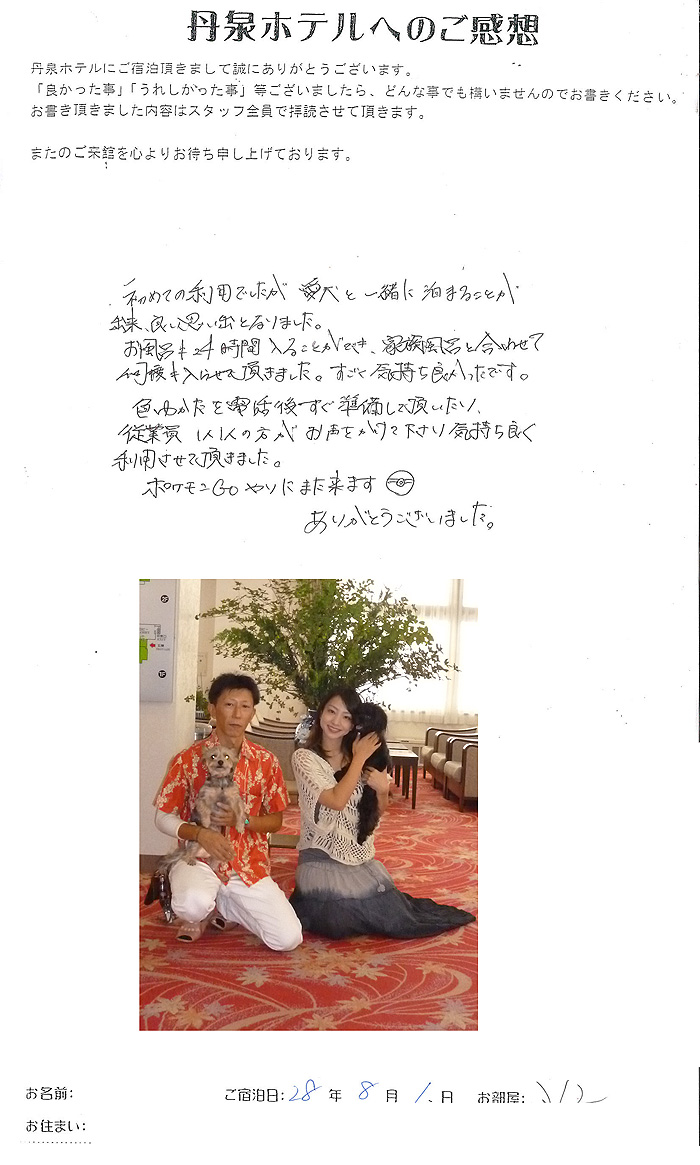 丹泉ホテルへのご感想
丹泉ホテルにご宿泊頂きまして誠にありがとうございます。
「良かった事」「うれしかった事」等ございましたら、どんな事でも構いませんのでお書きください。
お書き頂きました内容はスタッフ全員で拝読させて頂きます。
またのご来館を心よりお待ち申し上げております。
初めての利用でしたが 愛犬と一緒に泊まることが
出来、良い思い出となりました。
お風呂も24時間入ることができ、家族風呂と合わせて
何度も入らせて頂きました。すごく気持ち良かったです。
色ゆかたを電話後すぐ準備して頂いたり、
従業員 1人1人の方が お声をかけて下さり気持ち良く
利用させて頂きました。
ポケモンGOやりにまた来ます
ありがとうございました。
2F
1F
お名前:
ご宿泊日:28年 8月 1、日 お部屋:
お住まい: